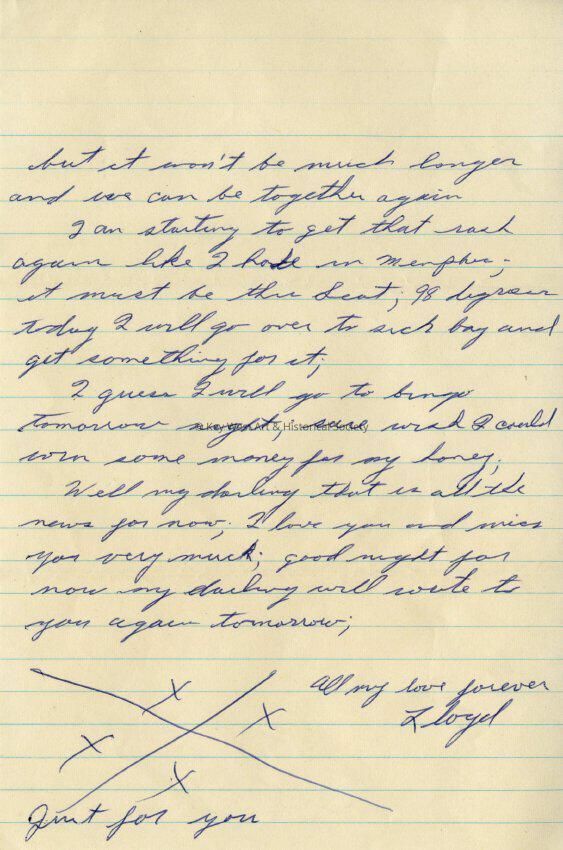 but it won't be much longer
and we can be together again
I an starting to get that rash
again like I hade in Memphis;
it must be the heat; 98 degrees
today I will go over to sick bay and
get something for it;
I guess I will go to bingo
tomorrow night, sure wish I could
© Key West Art & Historical Society
win some money for my honey;
Well my darling that is all the
news for now; I love you and miss
you very much; good night for
now my darling will write to
you again tomorrow;
All my love forever
Lloyd
X
X
X
X
Just for you